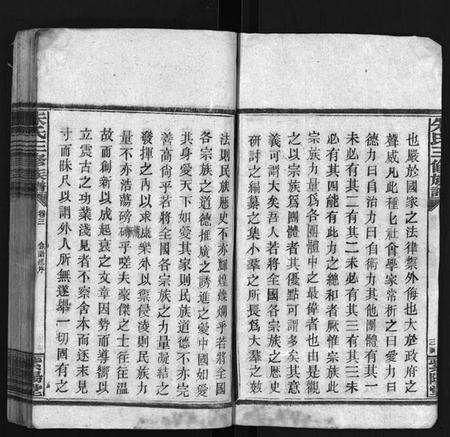 也嚴於國家之法律禦外侮也大於政府之
聲威凡此種匕社會學家常析之曰愛力曰
德力曰自治力曰自衛力其他團體有其一
未必有其二有其二未必有其三有其三未
必有其四能有此力之總和者厥惟宗族此
宗族力量爲各團體中之最偉者也由是觀
之以宗族爲團體者其優點可謂多矣其意
義可謂大矣吾人若將全國各宗族之歷史
研討之編纂之集小羣之所長爲大羣之效
法則民族歷史不亦輝煌燦爛乎若將全國
各宗族之道德推廣之誘進之愛中國如愛
其身愛天下如愛其家則民族道德不亦完
善高尚乎若將全國各宗族之力量凝結之
發揮之內以求康樂外以禦侵凌則民族力
量不亦浩蕩磅礴乎嗟夫豪傑之士往往溫
故而創新以成起衰之文章因勢而導嚮以
立震古之功業淺見者不察舍本而逐末見
寸而昧尺以謂外人所無遂舉一切固有之
朱氏三修族譜
卷三